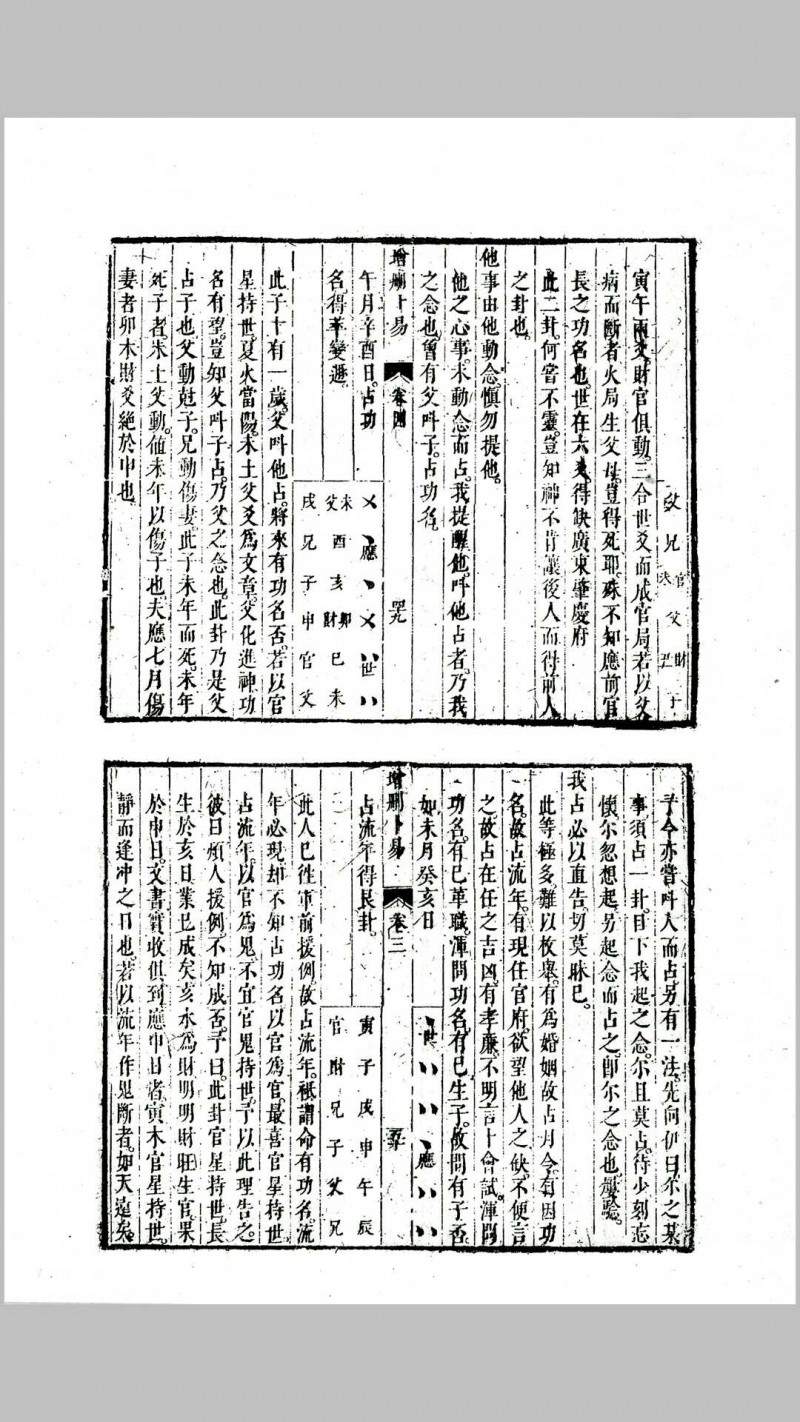 父兄官夫父財丑十
寅午兩爻財官俱動三合世爻而成官局若以父
病而斷者火局生父母豈得死耶殊不知應前官
長之功名也世在六爻得缺廣東肇慶府
此二卦何嘗不靈豈知神不肯讓後人而得前人
之卦也
他事由他動念慎勿提他
他之心事未動念而占我提醒他叫他占者乃我
之念也曾有父叫子占功名
增刪卜易 卷四 四九
午月辛酉日占功
名得革變遯
未父 酉 亥 卯財 巳 未
戌兄子申官父
應 世
此子十有一歲父叫他占將來有功名否若以官
星持世夏火當陽未土父爻為文章父化進神功
名有望豈知父叫子占乃父之念也此卦乃是父
占子也父動尅子兄動傷妻此子未年而死未年
死子者未土父動値未年以傷子也夫應七月傷
妻者卯木財爻絶於申也
予今亦嘗叫人而占另有一法先向伊曰尔之某
事須占一卦目下我起之念尔且莫占待少刻忘
懷尔忽想起另起念而占之即尔之念也颇驗
我占必以直告切莫昧已
此等極多難以枚舉有為婚姻故占月令有因功
名故占流年有現任官府欲望他人之缺不便言
之故占在任之吉凶有孝廉不明言十會試渾問
功名有已革職渾問功名有已生子故問有子否
如未月癸亥日
增刪卜易 卷三 五十
占流年得艮卦
世 應
寅子戌申午辰
官財兄子父兄
此人已徃軍前援例故占流年秪謂命有功名流
年必現却不知占功名以官為官最喜官星持世
占流年以官為鬼不宜官鬼持世予以此理告之
彼曰煩人援例不知成否予曰此卦官星持世長
生於亥日業已成矣亥水為財明明財旺生官果
於申日文書實收俱到應申日者寅木官星持世
靜而逢冲之日也若以流年作鬼斷者如天遠矣